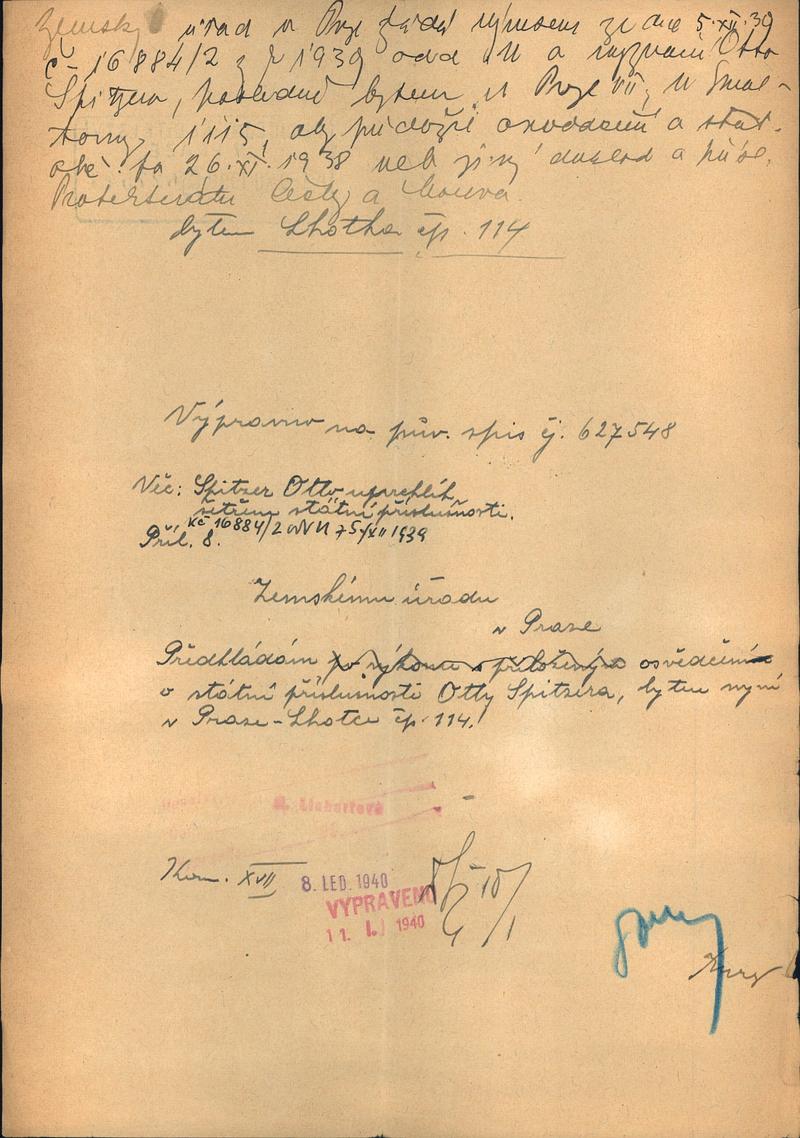 Zemský úřad v Praze žádá výnosem ze dne 5.XII.39
č. 16884/2 z r 1939 odd. VI a vyzvání Otto
Spitzera, posledně bytem v Praze VII, U Smal-
tovny 1115, aby předložil osvědčení o stát.
obč. ku 26.XI.1938 neb jiný doklad o přísl.
Protektorátu Čechy a Morava.
bytem Lhotka čp. 114
Výpravno na pův. spis čj. 627548
Věc: Spitzer Otto uprchlík,
šetření státní příslušnosti.
K č 16884/2 odd VI z 5/XII 1939
Příl. 8.
Zemskému úřadu
v Praze
Předkládám po výkonu s přiloženým osvědčení
o státní příslušnosti Otty Spitzera, bytem nyní
v Praze-Lhotce čp. 114.
Kom. XVII
8. LED. 1940
VYPRAVENO
11. I. 1940